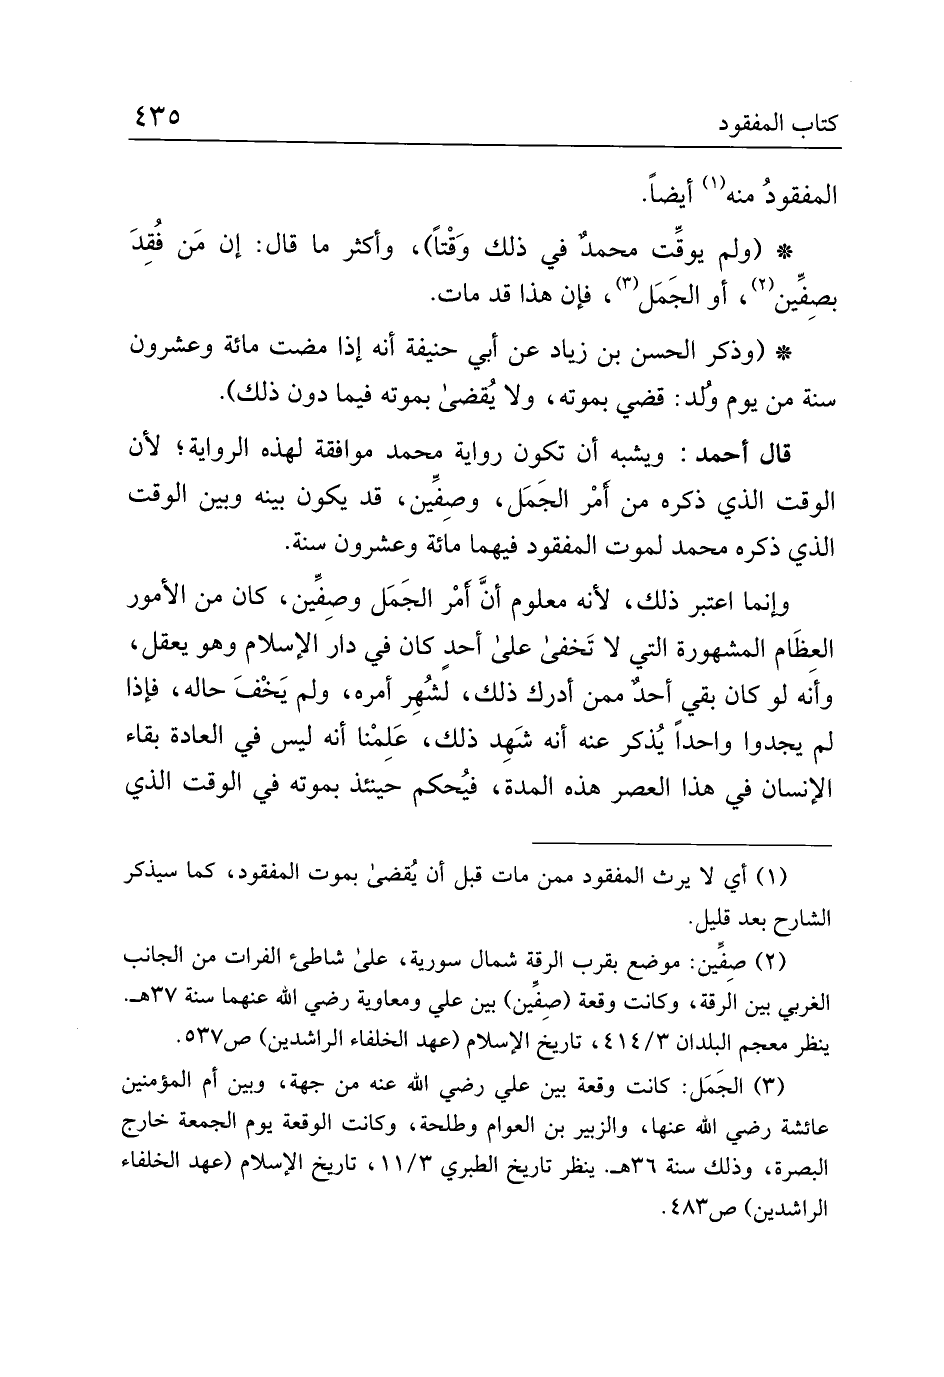 كتاب المفقود ٤٣٥
المفقودُ منه(١) أيضاً.
* (ولم يوقِّت محمدٌ في ذلك وَقْتاً)، وأكثر ما قال: إن مَن فُقِدَ
بصِفِّين(٢)، أو الجَمَل(٣)، فإن هذا قد مات.
* (وذكر الحسن بن زياد عن أبي حنيفة أنه إذا مضت مائة وعشرون
سنة من يوم وُلد: قضي بموته، ولا يُقضىٰ بموته فيما دون ذلك).
قال أحمد: ويشبه أن تكون رواية محمد موافقة لهذه الرواية؛ لأن
الوقت الذي ذكره من أَمْر الجَمَل، وصِفِّين، قد يكون بينه وبين الوقت
الذي ذكره محمد لموت المفقود فيهما مائة وعشرون سنة.
وإنما اعتبر ذلك، لأنه معلوم أنَّ أَمْر الجَمَل وصِفِّين، كان من الأمور
العِظَام المشهورة التي لا تَخفىٰ علىٰ أحدٍ كان في دار الإسلام وهو يعقل،
وأنه لو كان بقي أحدٌ ممن أدرك ذلك، لشُهِر أمره، ولم يَخْفَ حاله، فإذا
لم يجدوا واحداً يُذكر عنه أنه شَهِد ذلك، عَلِمْنا أنه ليس في العادة بقاء
الإنسان في هذا العصر هذه المدة، فيُحكم حينئذ بموته في الوقت الذي
(١) أي لا يرث المفقود ممن مات قبل أن يُقضىٰ بموت المفقود، كما سيذكر
الشارح بعد قليل.
(٢) صِفِّين: موضع بقرب الرقة شمال سورية، علىٰ شاطئ الفرات من الجانب
الغربي بين الرقة، وكانت وقعة (صِفِّين) بين علي ومعاوية رضي الله عنهما سنة ٣٧هـ.
ينظر معجم البلدان ٤١٤/٣، تاريخ الإسلام (عهد الخلفاء الراشدين) ص٥٣٧.
(٣) الجَمَل: كانت وقعة بين علي رضي الله عنه من جهة، وبين أم المؤمنين
عائشة رضي الله عنها، والزبير بن العوام وطلحة، وكانت الوقعة يوم الجمعة خارج
البصرة، وذلك سنة ٣٦هـ. ينظر تاريخ الطبري ١١/٣، تاريخ الإسلام (عهد الخلفاء
الراشدين) ص٤٨٣.